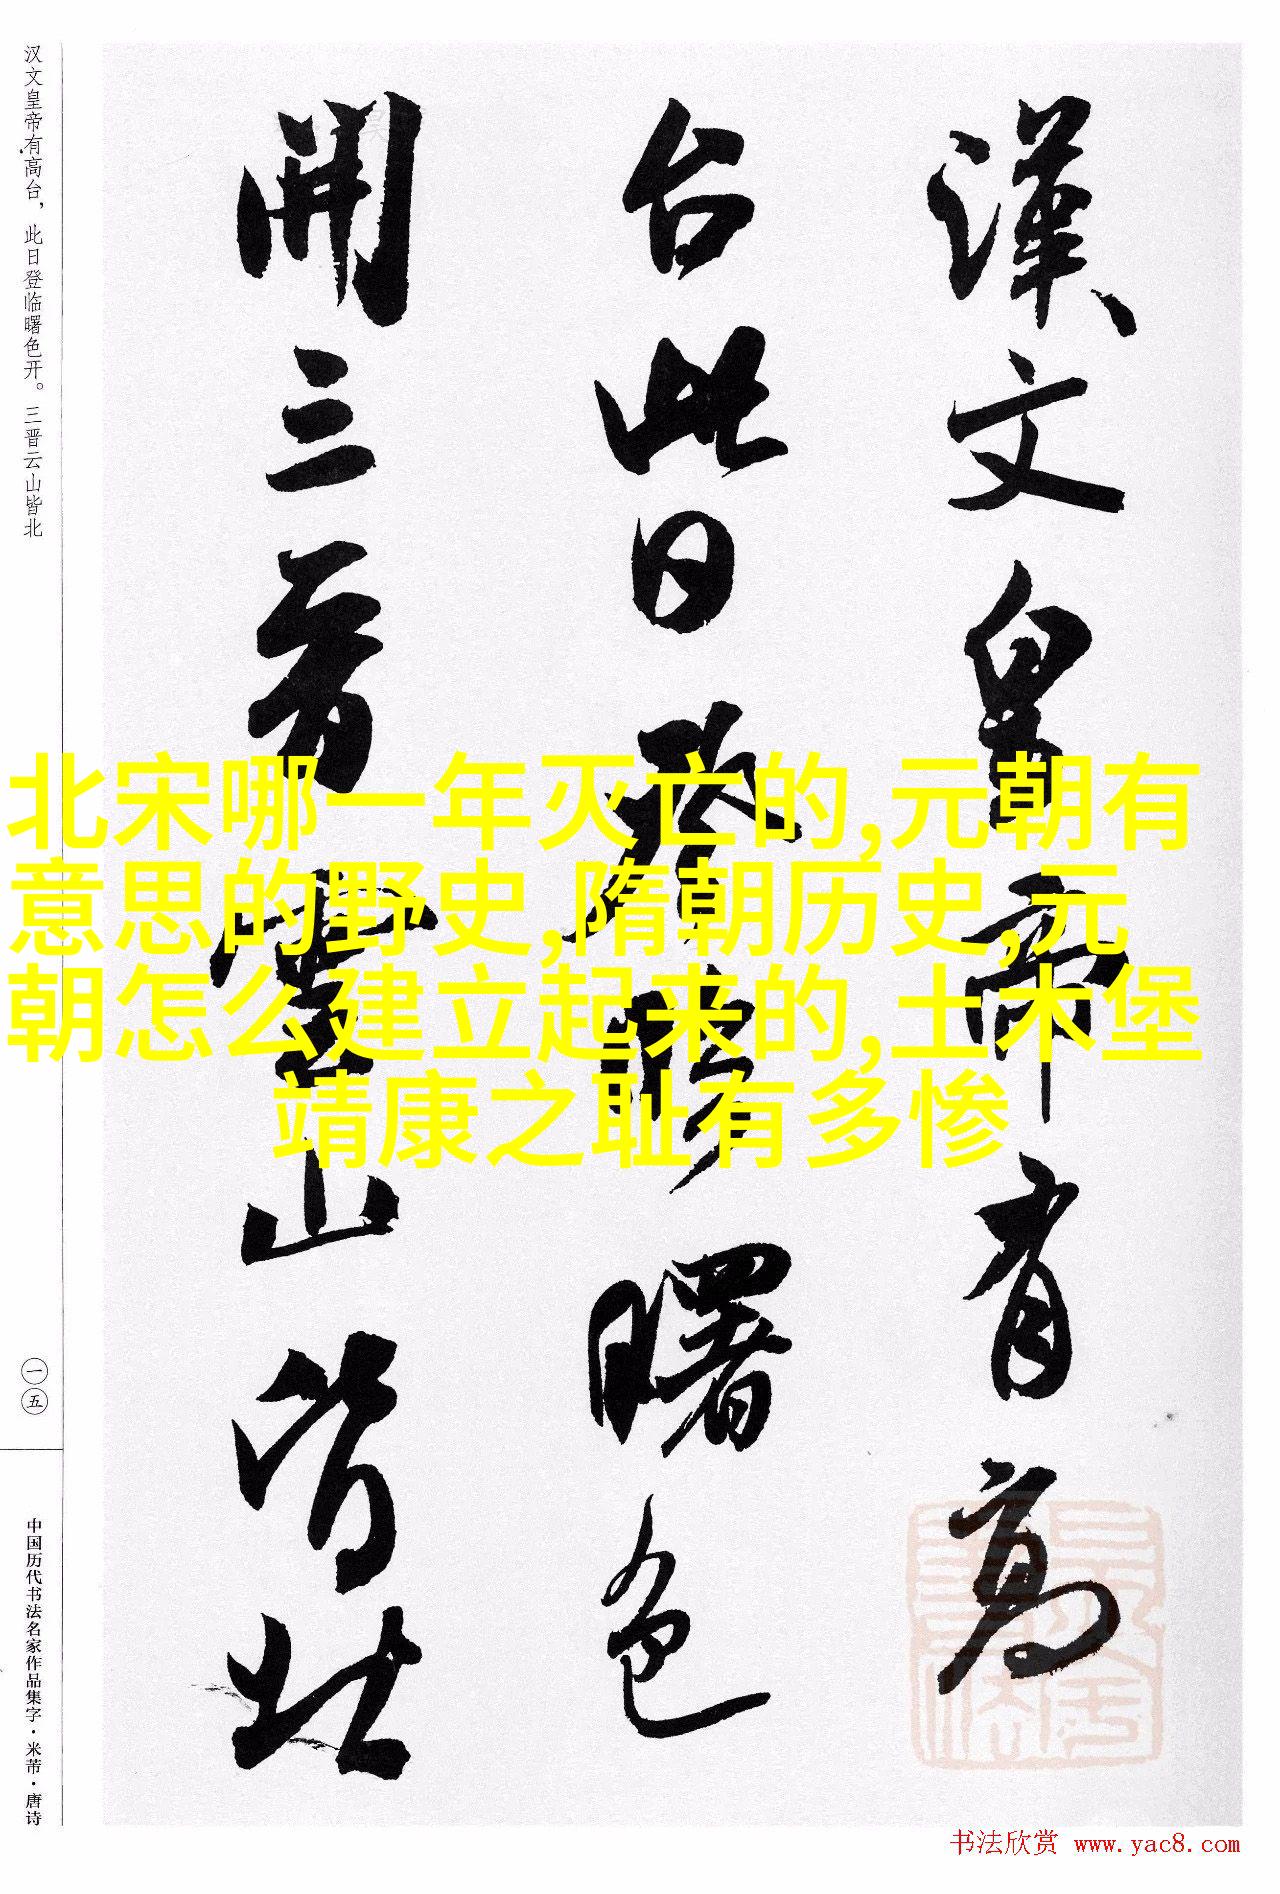 漢文皇帝有高
台此日登臨曙色
開三晉雲山皆北
汉文皇帝有高台，此日登临曙色开。三晋云山皆北
一五
中国历代书法名家作品集字·米芾·唐诗
北宋哪一年灭亡的,元朝有
意思的野史,隋朝历史,元
朝怎么建立起来的,土木堡
靖康之耻有多惨
书法欣赏 www.yac8.com